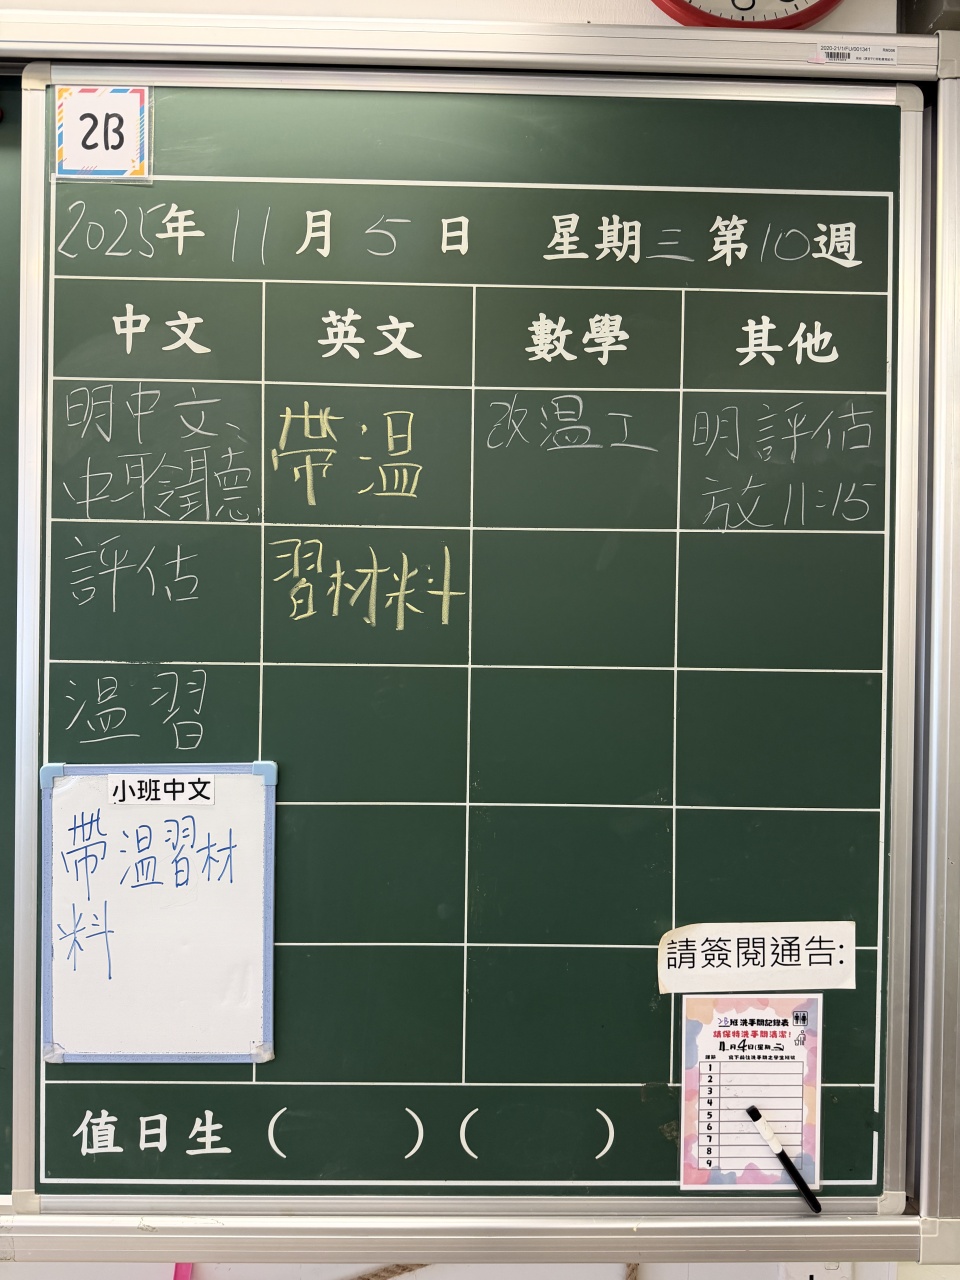 2020-21/1/FU/001341
2B
2025年 11月 5日 星期三 第10週
中文 英文 數學 其他
明中文、
中聆聽
評估
溫習
帶溫
習材料
改溫工
明評估
放11:15
小班中文
帶溫習材
料
請簽閱通告:
2B班洗手間記錄表
請保持洗手間清潔!
11月4日(星期二)
課節
1
2
3
4
5
6
7
8
9
值日生( )( )